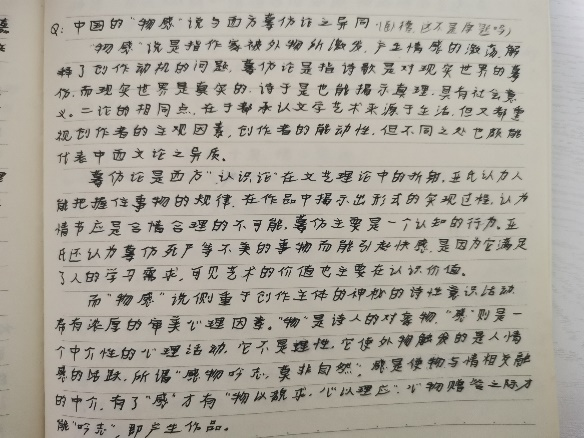 Q: 中国的"物感"说与西方摹仿论之异同
"物感"说是指作家被外物所激发,产生情感的激荡,解
释了创作动机的问题。摹仿论是指诗歌是对现实世界的摹
仿,而现实世界是真实的,诗于是也能揭示真理,具有社会意
义。二论的相同点,在于都承认文学艺术来源于生活,但又都重
视创作者的主观因素,创作者的能动性,但不同之处也颇能
代表中西文论之异质。
摹仿论是西方"认识论"在文艺理论中的折射。亚氏认为人
能把握住事物的规律,在作品中揭示出形式的实现过程,认为
情节应是合情合理的不可能,摹仿主要是一个认知的行为。亚
氏还认为摹仿死尸等不美的事物而能引起快感,是因为它满足
了人的学习需求,可见艺术的价值也主要在认识价值。
而"物感"说侧重于创作主体的神秘的诗性意识活动,
存有浓厚的审美心理因素。"物"是诗人的对象物,"感"则是一
个中介性的心理活动,它不是理性,它使外物触发的是人情
感的活跃,所谓"感物吟志,莫非自然"。感是使物与情相交融
的中介,有了"感"才有"物以貌求,心以理应",心物赠答之际,才
能"吟志",即产生作品。